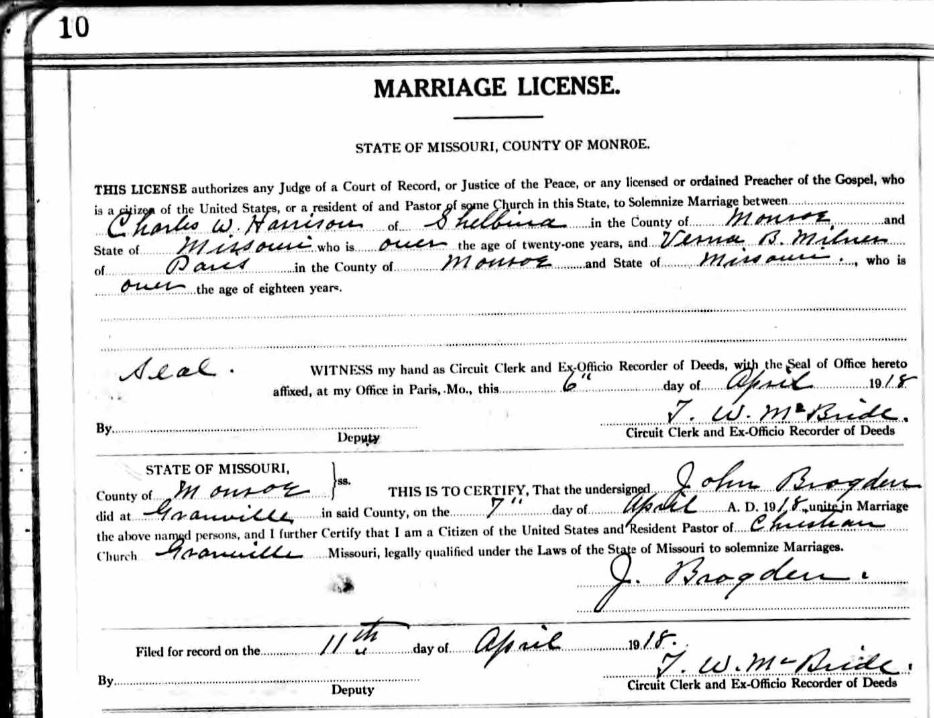 10
MARRIAGE LICENSE.
STATE OF MISSOURI, COUNTY OF MONROE.
THIS LICENSE authorizes any Judge of a Court of Record, or Justice of the Peace, or any licensed or ordained Preacher of the Gospel, who
is a citizen of the United States, or a resident of and Pastor of some Church in this State, to Solemnize Marriage between
Charles W. Harrison of Shelbina in the County of Monroe and
State of Missouri who is over the age of twenty-one years, and Verna B. Milner
of Paris in the County of Monroe and State of Missouri, who is
over the age of eighteen years.
Seal. WITNESS my hand as Circuit Clerk and Ex-Officio Recorder of Deeds, with the Seal of Office hereto
affixed, at my Office in Paris, Mo., this 6" day of April 1918
T. W. McBride.
By Deputy
Circuit Clerk and Ex-Officio Recorder of Deeds
STATE OF MISSOURI,
County of Monroe } ss. THIS IS TO CERTIFY, That the undersigned John Brogden
did at Granville in said County, on the 7" day of April A. D. 1918, unite in Marriage
the above named persons, and I further Certify that I am a Citizen of the United States and Resident Pastor of Christian
Church Granville Missouri, legally qualified under the Laws of the State of Missouri to solemnize Marriages.
J. Brogden.
Filed for record on the 11th day of April 1918.
T. W. McBride.
By Deputy
Circuit Clerk and Ex-Officio Recorder of Deeds